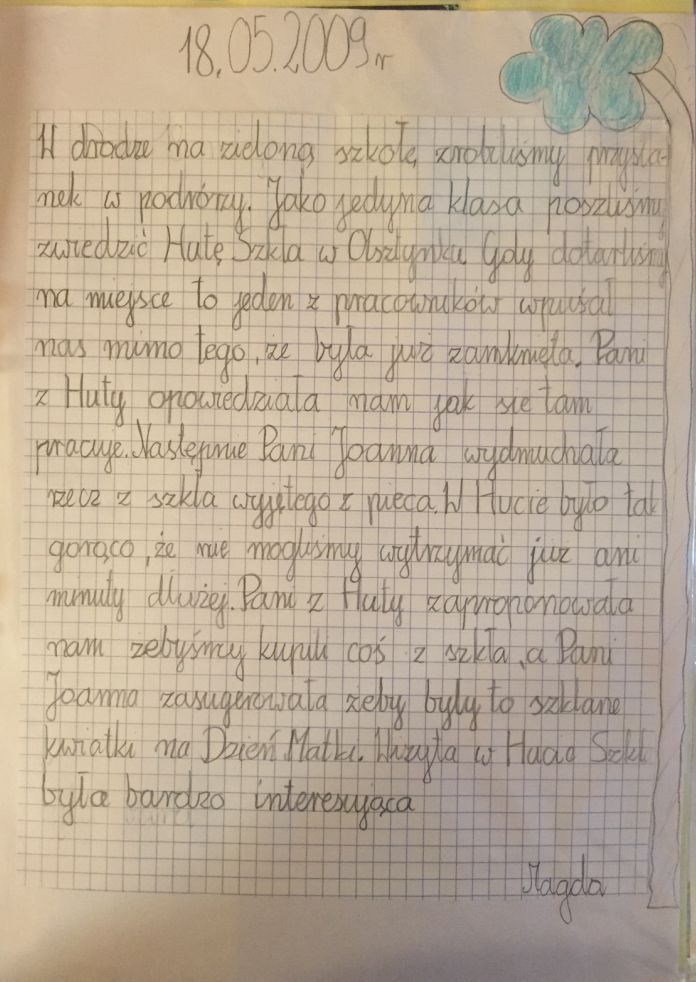 18.05.2009r
W drodze na zieloną szkołę zrobiliśmy przysta-
nek w podróży. Jako jedyna klasa poszliśmy
zwiedzić Hutę Szkła w Olsztynku Gdy dotarliśmy
na miejsce to jeden z pracowników wpuścił
nas mimo tego, że była już zamknięta. Pani
z Huty opowiedziała nam jak się tam
pracuje. Następnie Pani Joanna wydmuchała
rzecz z szkła wyjętego z pieca. W Hucie było tak
gorąco, że nie mogliśmy wytrzymać już ani
minuty dłużej. Pani z Huty zaproponowała
nam zebyśmy kupili coś z szkła, a Pani
Joanna zasugerowała żeby były to szklane
kwiatki na Dzień Matki. Wizyta w Hucie Szkł
była bardzo interesująca
Magda